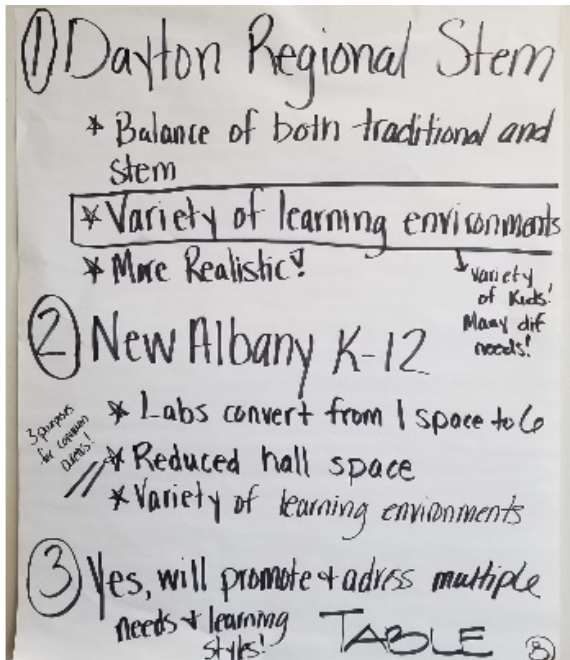 1 Dayton Regional Stem
* Balance of both traditional and
stem
* Variety of learning environments
* More Realistic!
Variety
of Kids!
Many dif
needs!
2 New Albany K-12
* Labs convert from 1 space to 6
3 purposes
for common
areas!
* Reduced hall space
* Variety of learning environments
3 Yes, will promote + adress multiple
needs + learning
styles!
TABLE